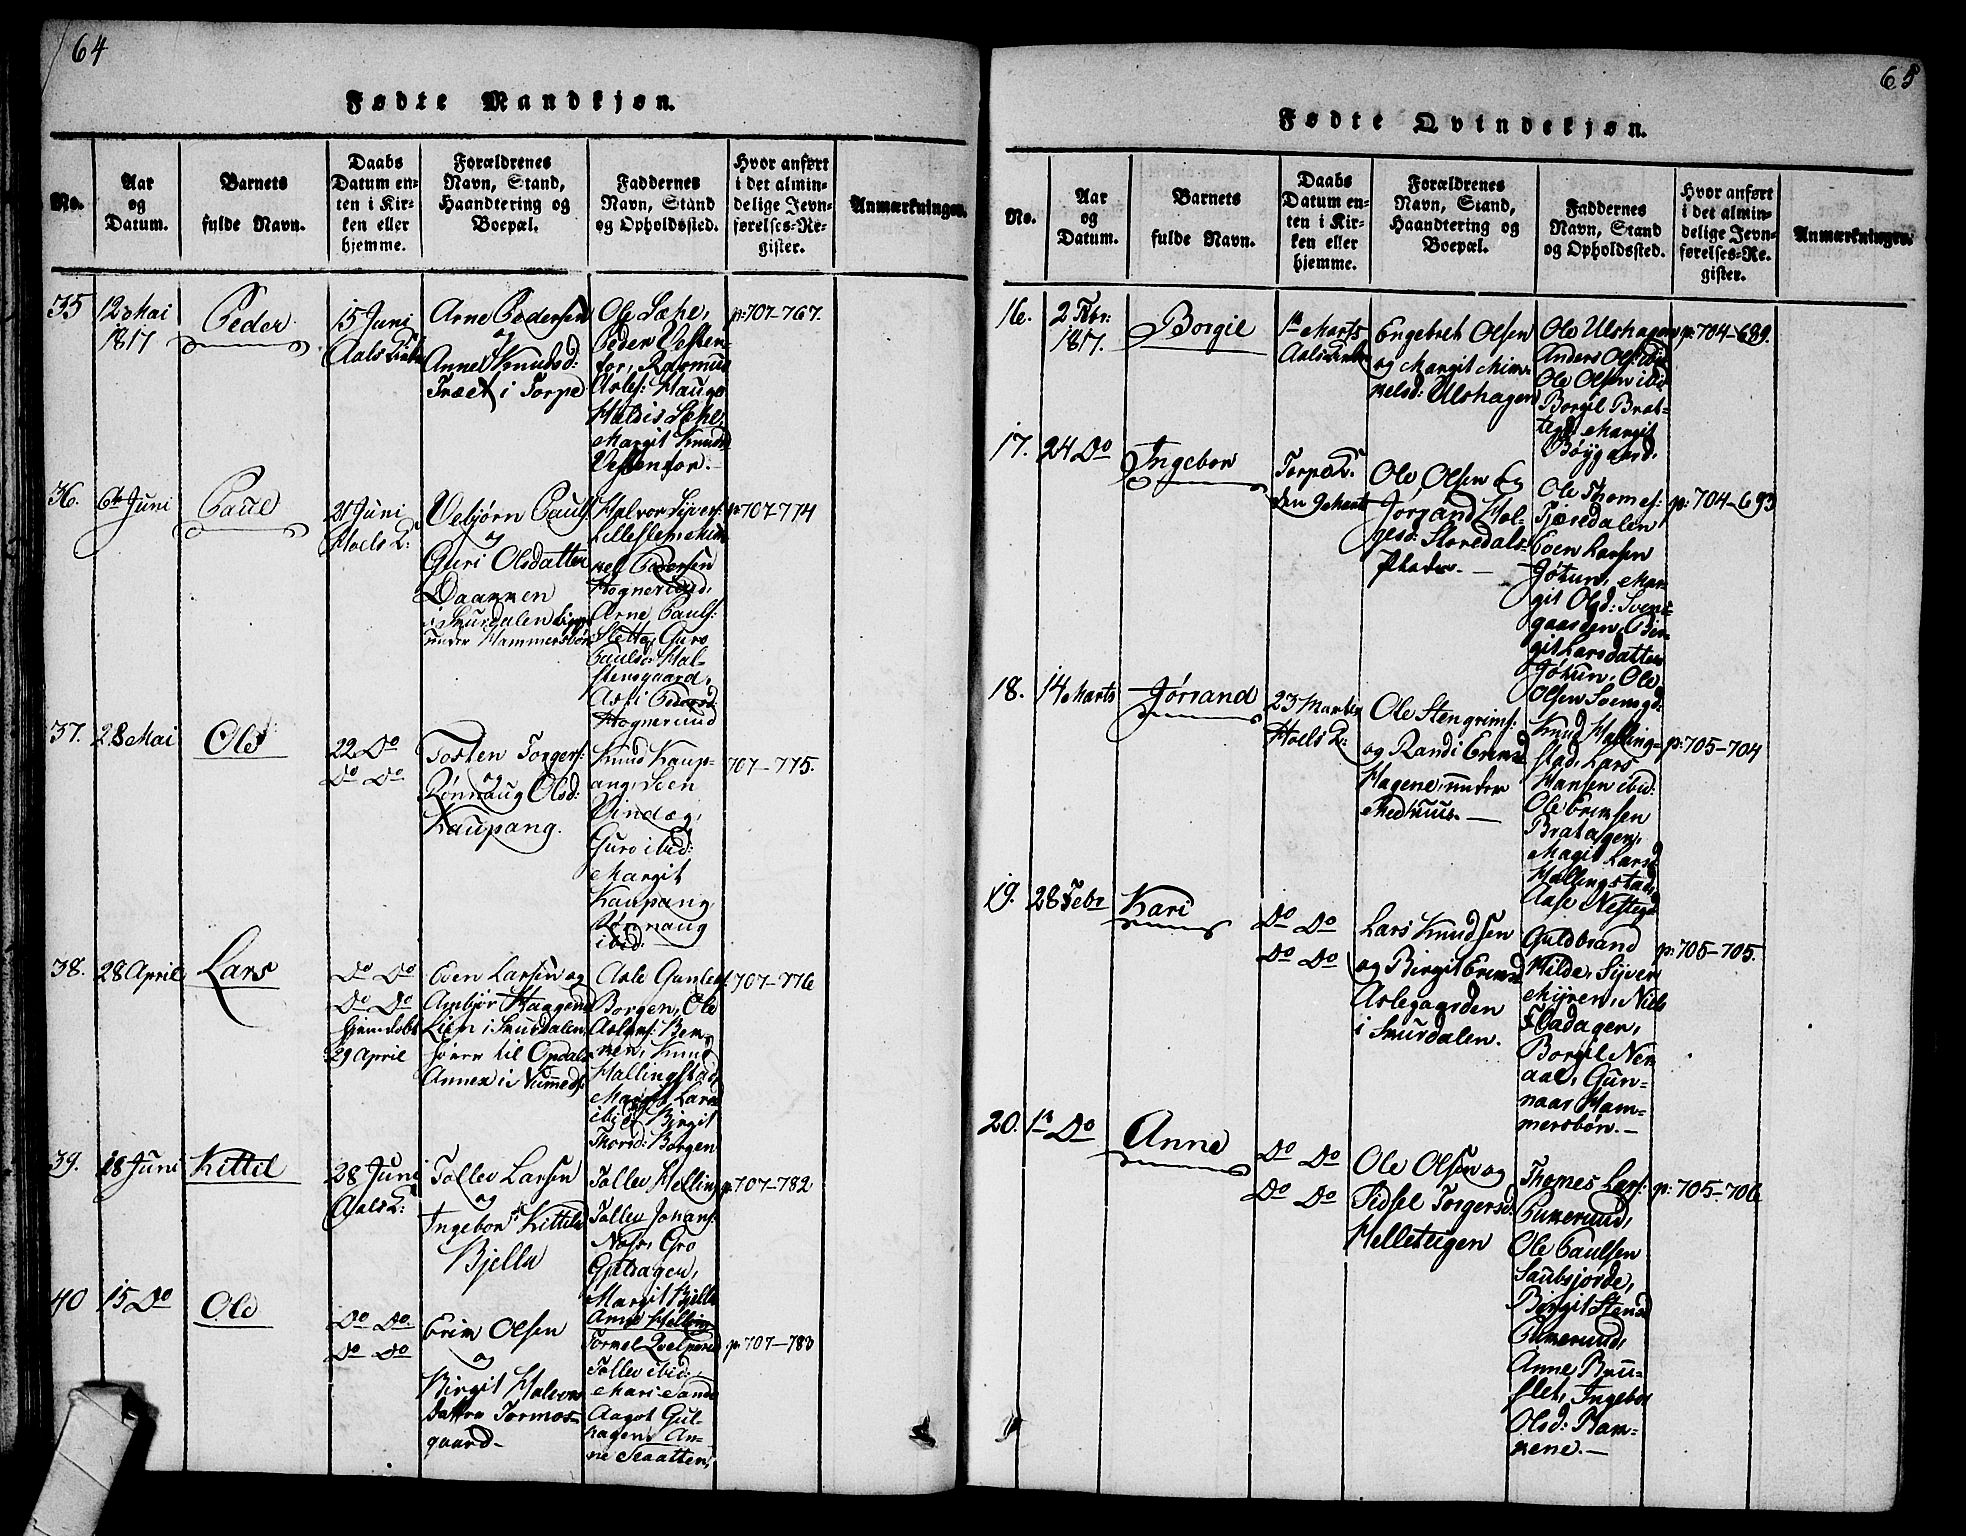 64
Fødte Mandkjøn.
No.
Aar
og
Datum.
Barnets
fulde Navn.
Daabs
Datum en-
ten i Kir-
ken eller
hjemme.
Forældrenes
Navn, Stand,
Haandtering og
Boepæl.
Faddernes
Navn, Stand
og Opholdssted.
Hvor anført
i det almin-
delige Jevn-
førelses-Re-
gister.
Anmærkninger.
35
12 Mai
1817
Peder
15 Juni
Aals Kirke
Arne Pedersen
og
Anne Knudsd:
Træet i Torpe
Ole Sæhe,
Peder Vesten-
for, Rasmus
Asles: Hauge
Haldis Sæhe,
Margit Knudsd
Vestenfor.
p: 707-767.
36.
6te Juni
Paul
21 Juni
Hoels K:
Vebjørn Pauls:
og
Guri Olsdatter
Daarren
i Skurdalen ligge
under Hammersbøn
Halvor Sivers:
Lilleslette Mik-
kel Pedersen
Hognerud,
Arne Pauls:
Slette, Guro
Paulsd Hal-
stensgaard,
Aase Pedersd:
Hognerud
p: 707-774
37.
28 Mai
Ole
22 Do
Do Do
Tosten Torgers:
og
Rønnaug Olsd:
Kaupang.
Knud Kaup-
ang, Sven
Vindæg,
Guro ibid:
Margit
Kaupang
Rønnaug
ibid:
707-775.
38.
28 April
Lars
Do Do
Do Do
hjemdøbt
29 April
Even Larsen og
Ambjør Haagensd
Lien i Skurdalen
hører til Opdals
Annex i Nummed:
Asle Gunleks:
Borgen, Ole
Aslaks: Bør-
ren, Knud
Hallingstad
Margit Larsd
ibid Birgit
Thorsd: Borgen
707-776
39.
18 Juni
Kittil
28 Juni
Aals K:
Tollev Larsen
og
Ingebor Kittils
Bjella
Tollev Helling
Tollev Johans:
Næss, Gro
Opdragen,
Margit Bjella
Anne Helling
p: 707-782
40
15 Do
Ole
Do Do
Do Do
Erik Olsen
og
Birgit Halvors
datter Tormos-
gaard
Tormel Qvelprud
Tollev ibid:
Mari Sando
Aagot Gul-
hagen, An-
ne Slaatten,
p: 707-783
65
Fødte Qvindekjøn.
No.
Aar
og
Datum.
Barnets
fulde Navn.
Daabs
Datum en-
ten i Kir-
ken eller
hjemme.
Forældrenes
Navn, Stand,
Haandtering og
Boepæl.
Faddernes
Navn, Stand
og Opholdssted.
Hvor anført
i det almin-
delige Jevn-
førelses-Re-
gister.
Anmærkninger.
16.
2 Febr:
1817.
Borgil
1te Marts
Aals Kirke
Engebret Olsen
og Margit Mik-
kelsd: Ulshagen
Ole Ulshagen
Anders Olsen ibid
Ole Olsen ibid
Borgil Brat-
teg: Margit
Bøygaard,
p: 704-689.
17.
24 Do
Ingebor
Torpe K.
den 9de Marts
Ole Olsen og
Jorand Hol-
gesd: Storedals-
pladse.
Ole Thomes:
Tjæredalen
Even Larsen
Jøtun, Mar-
git Olsd: Svens-
gaarden, Bir-
git Larsdatter
Jøtun, Ole
Olsen Svensgd:
p: 704-693
18.
14 Marts
Jørand
23 Martsy
Hoels K:
Ole Stengrims:
og Randi Eriksd
Hagene under
Medhuus.
Knud Halling-
stad, Lars
Hansen ibid:
Ole Eriksen
Bratagen,
Magit Larsd
Hallingstad,
Aase Nestegd
p: 705-704
19.
28 Febr
Kari
Do Do
Do Do
Lars Knudsen
og Birgit Eriksd
Aslegaarden
i Skurdalen.
Guldbrand
Hilde, Siver
Myren, Niels
Fladagen,
Borgil Ner-
aal, Gun-
naar Ham-
mersbøn.
p: 705-705.
20.
1te Do
Anne
Do Do
Do Do
Ole Olsen og
Sidsel Torgersd:
Helleteigen
Thomes Lars:
Eukerud,
Ole Paulsen
Saubsjorde,
Birgit Stensd
Eukerud,
Anne Bruu-
slet, Ingebor
Olsd: Bak-
kene.
p: 705-706